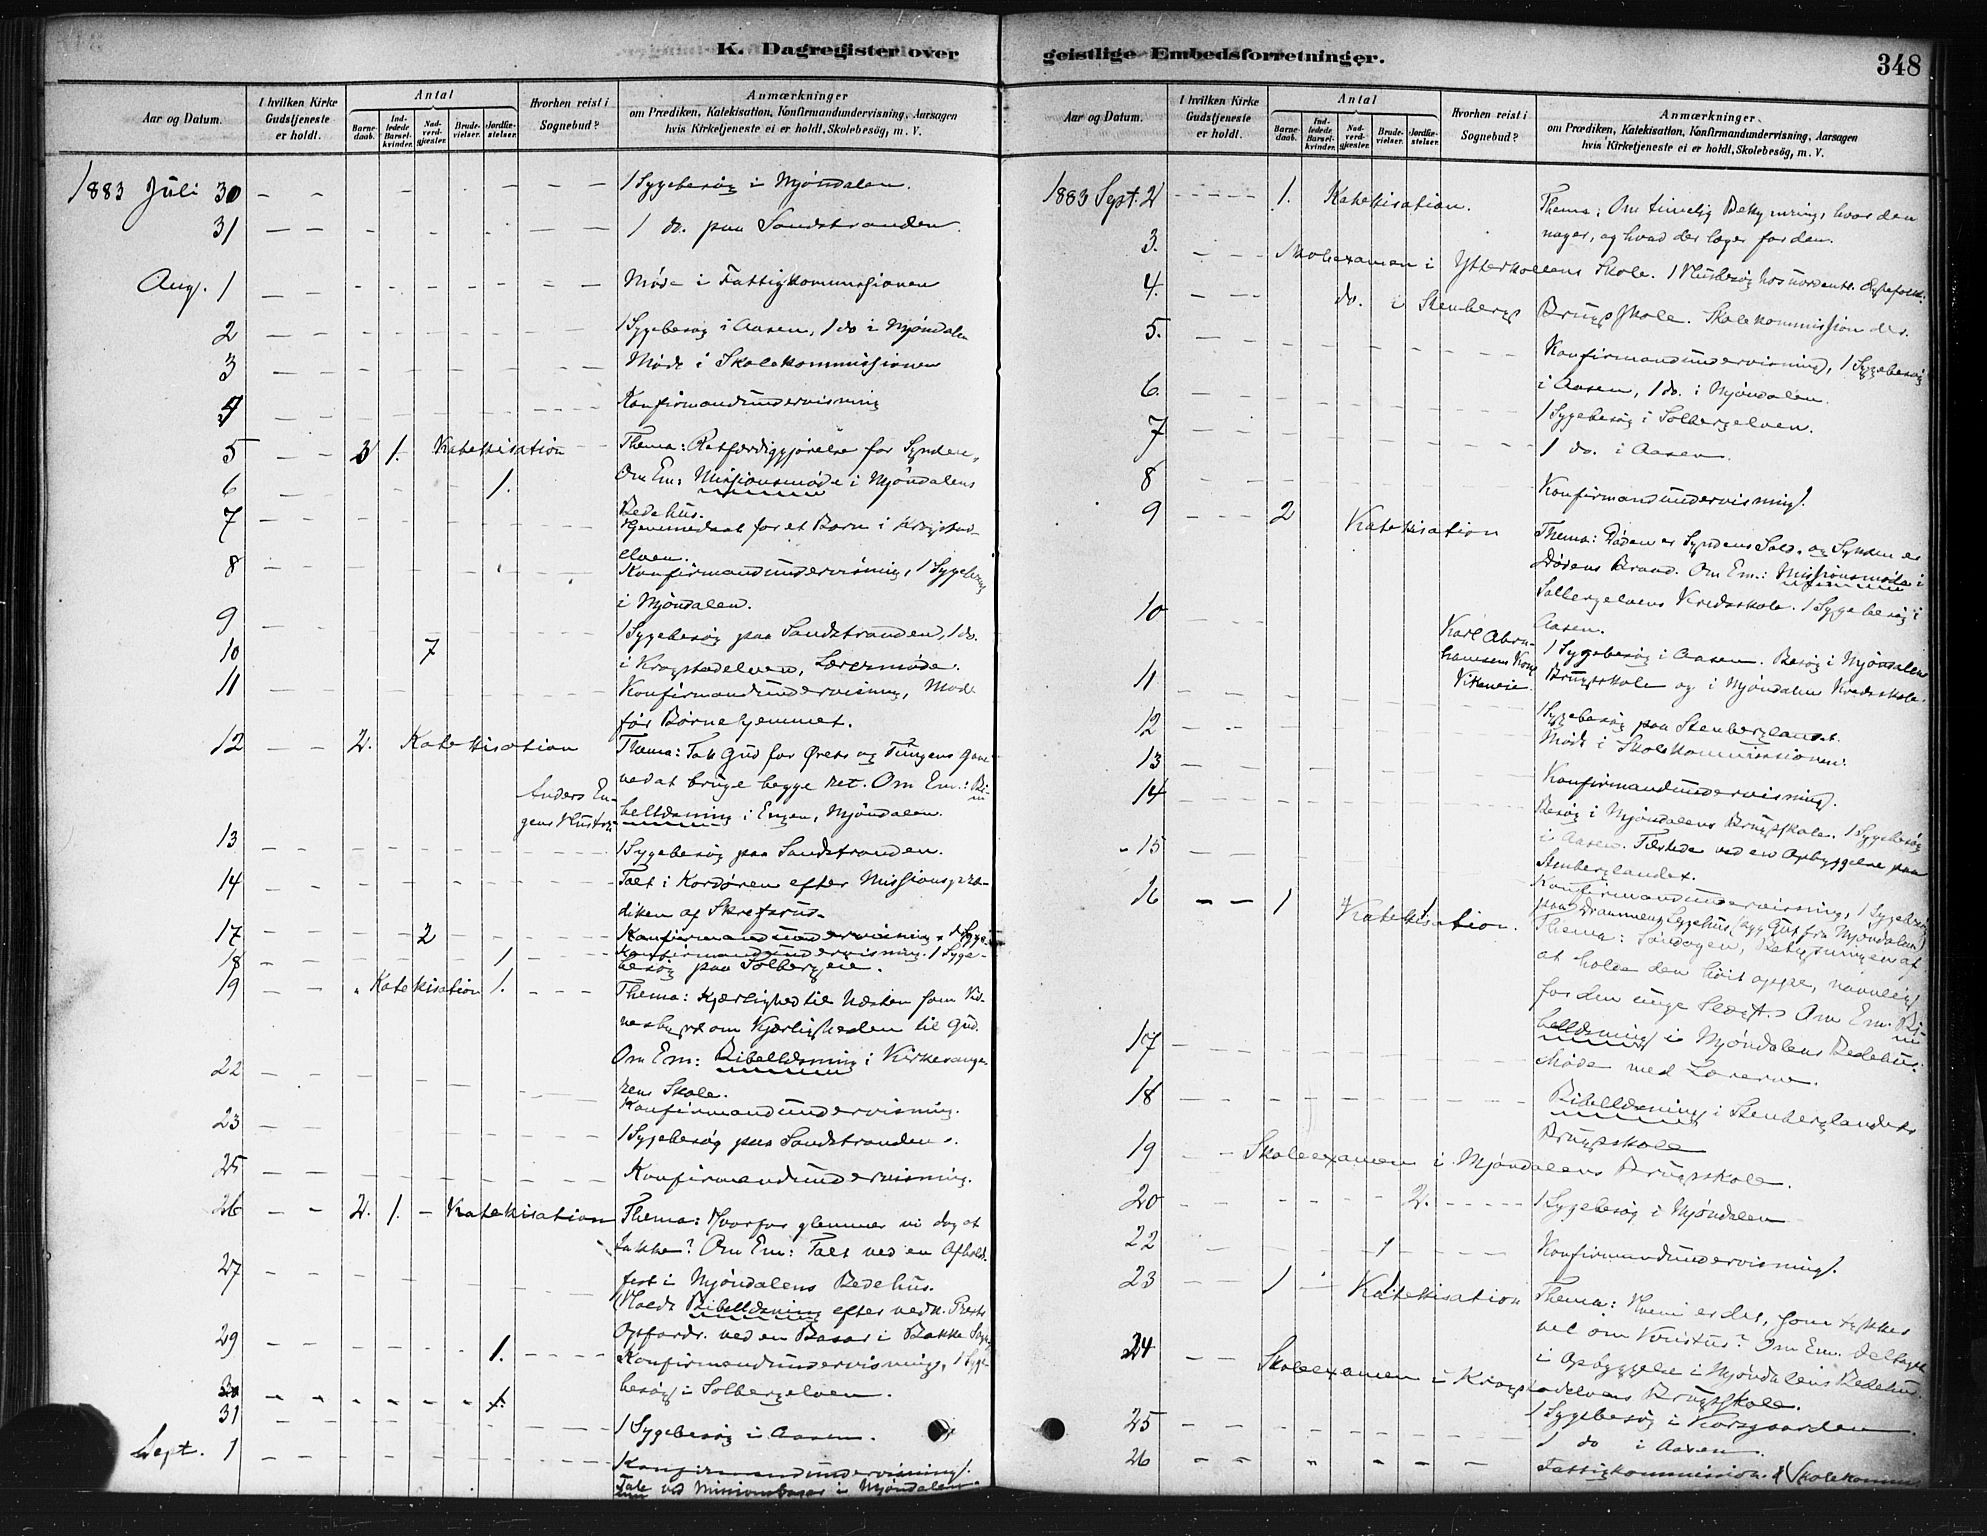 K. Dagregister over
Aar og Datum.
I hvilken Kirke Gudstjeneste er holdt.
Antal
Barne-daab.
Ind-ledede Barsel-kvinder.
Nad-verd-gjæster.
Brude-vielser.
Jordfæ-stelser.
Hvorhen reist i Sognebud?
Anmærkninger
om Prædiken, Katekisation, Konfirmandundervisning, Aarsagen
hvis Kirketjeneste ei er holdt, Skolebesøg, m. V.
1883 Juli 30 1 Sygebesøg i Mjøndalen.
31 1 do. paa Sandstranden.
Aug. 1 Møde i Fattigkommissionen
2 1 Sygebesøg i Aasen, 1 do i Mjøndalen
3 Møde i Skolekommissionen
4 Konfirmandundervisning
5 3 1. Katekisation Thema: Retfærdiggjørelse for Synden.
6 1. Om Em: Missionsmøde i Mjøndalens
Bedehus.
7 Hjemmedaab for et Barn i Krogstad-
elven.
8 Konfirmandundervisning, 1 Sygebesøg
i Mjøndalen.
9 1 Sygebesøg paa Sandstranden, 1 do.
10 7 i Krogstadelven, Lærermøde.
11 Konfirmandundervisning, Møde
for Børnehjemmet.
12 2. Katekisation Thema: Tak Gud for Ørets og Tungens Gave
ved at bruge begge ret. Om Em.: Bi-
Anders En-
gens Hustru
bellæsning i Engen, Mjøndalen.
13 1 Sygebesøg paa Sandstranden.
14 Talt i Kordøren efter Missionspræ-
diken af Skrefsrud.
17 2 Konfirmandundervisning, 1 Syge-
18 1 Konfirmandundervisning. 1 Syge-
besøg paa Solbergeie.
19 Katekisation 1. Thema: Kjærlighed til Næsten som Vid-
nesbyrd om Kjærligheden til Gud.
Om Em: Bibellæsning i Kirkevange-
22 rens Skole.
Konfirmandundervisning.
23 1 Sygebesøg paa Sandstranden.
25 Konfirmandundervisning.
26 2. 1. Katekisation Thema: Hvorfor glemmer vi dog at
takke? Om Em: Talt ved en Afholds-
27 fest i Mjøndalens Bedehus.
Holdt Bibellæsning efter vedk. Prests
Opfordr. ved en Basar i Bakke Sogn
29 1. Konfirmandundervisning, 1 Syge-
besøg i Solbergelven.
30 1.
31 1 Sygebesøg i Aasen.
Sept. 1 Konfirmandundervisning.
Tale ved Missionsbasar i Mjøndalen
geistlige Embedsforretninger.
348
Aar og Datum.
I hvilken Kirke Gudstjeneste er holdt.
Antal
Barne-daab.
Ind-ledede Barsel-kvinder.
Nad-verd-gjæster.
Brude-vielser.
Jordfæ-stelser.
Hvorhen reist i Sognebud?
Anmærkninger.
om Prædiken, Katekisation, Konfirmandundervisning, Aarsagen
hvis Kirketjeneste ei er holdt, Skolebesøg, m. V.
1883 Sept. 2 1. Katekisation. Thema: Om timelig Bekymring, hvor den
nager, og hvad der læger for den.
3. Skolexamen i Ytterkollens Skole. 1 Husbesøg hos
4. do. i Stenbergs Brugsskole. Skolekommission der.
5. Konfirmandundervisning, 1 Sygebesøg
i Aasen, 1 do. i Mjøndalen.
6. 1 Sygebesøg i Solbergelven.
7 1 do. i Aasen.
8 Konfirmandundervisning.
9 2 Katekisation Thema: Døden er Syndens Sold, og Synden er
Dødens Braad. Om Em.: Missionsmøde i
Solbergelvens Kredsskole. 1 Sygebesøg i
Aasen.
10 Karl Abra-
hamsens Kone
Vikeneie
1 Sygebesøg i Aasen. Besøg i Mjøndalens
11 Brugsskole og i Mjøndalens Kredsskole.
12 1 Sygebesøg paa Stenberglandet.
Møde i Skolekommissionen.
13 Konfirmandundervisning.
14 Besøg i Mjøndalens Brugsskole, 1 Sygebesøg
i Aasen. Tilstede ved en Opbyggelse paa
Stenberglandet.
15 Konfirmandundervisning, 1 Sygebesøg
paa Drammens Sygehus
16 1 1 Katekisation. Thema: Søndagen, Betydningen af
at holde den høit oppe, navnlig
for den unge Slægt. Om Em. Bi-
bellæsning i Mjøndalens Bedehus.
17 Møde med Lærerne.
18 Bibellæsning i Stenberglandets
Brugsskole
19 Skoleexamen i Mjøndalens Brugsskole.
20 2. 1 Sygebesøg i Mjøndalen
22 1 Konfirmandundervisning.
23 1 1 Katekisation Thema: Hvem er det, som tykkes
vel om Kristus? Om Em. deltaget
i Opbyggelse i Mjøndalens Bedehus.
24 Skoleexamen i Krogstadelvens Brugsskole.
25 1 Sygebesøg i Korsgaarden
1 do i Aasen.
26 Fattigkommission & Skolekomm